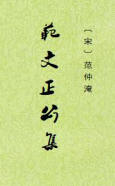 范文正公集
〔宋〕范仲淹